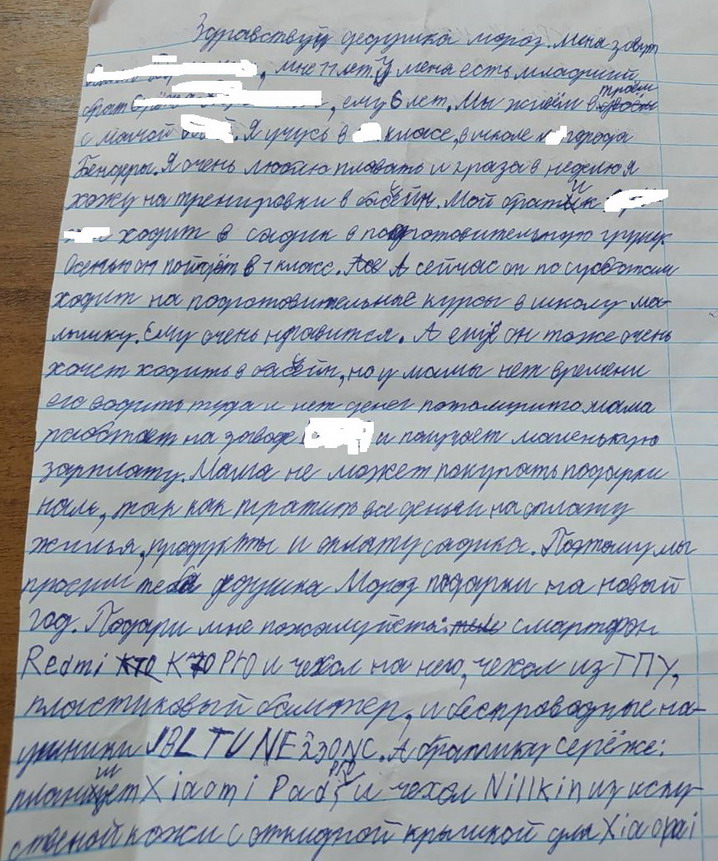 Здравствуй дедушка мороз. Меня зовут
, мне 11 лет У меня есть младший
брат , ему 6 лет. Мы живём в троём
с мамой . Я учусь в классе, в школе города
Бендеры. Я очень люблю плавать и 2 раза в неделю я
хожу на тренировки в басейн. Мой братик
ходит в садик в подготовительную групу.
Осенью он пойдёт в 1 класс. А сейчас он по субботам
ходит на подготовительные курсы в школу ма-
лышку. Ему очень нравится. А ещё он тоже очень
хочет ходить в басейн, но у мамы нет времени
его водить туда и нет денег потомушто мама
работает на заводе и получает маленькую
зарплату. Мама не может покупать подарки
нам, так как тратит все деньги на оплату
жилья, продукты и оплату садика. Поэтому мы
просим тебя дедушка Мороз подарки на новый
год. Подари мне пожалуйста: смартфон
Redmi K70 Pro и чехол на него, чехол из ТПУ,
пластиковый бампер, и беспроводные на-
ушники JBL TUNE 230NC. А братику серёже:
планшет Xiaomi Pad и чехол Nillkin из иску-
ственой кожи с откидной крышкой для